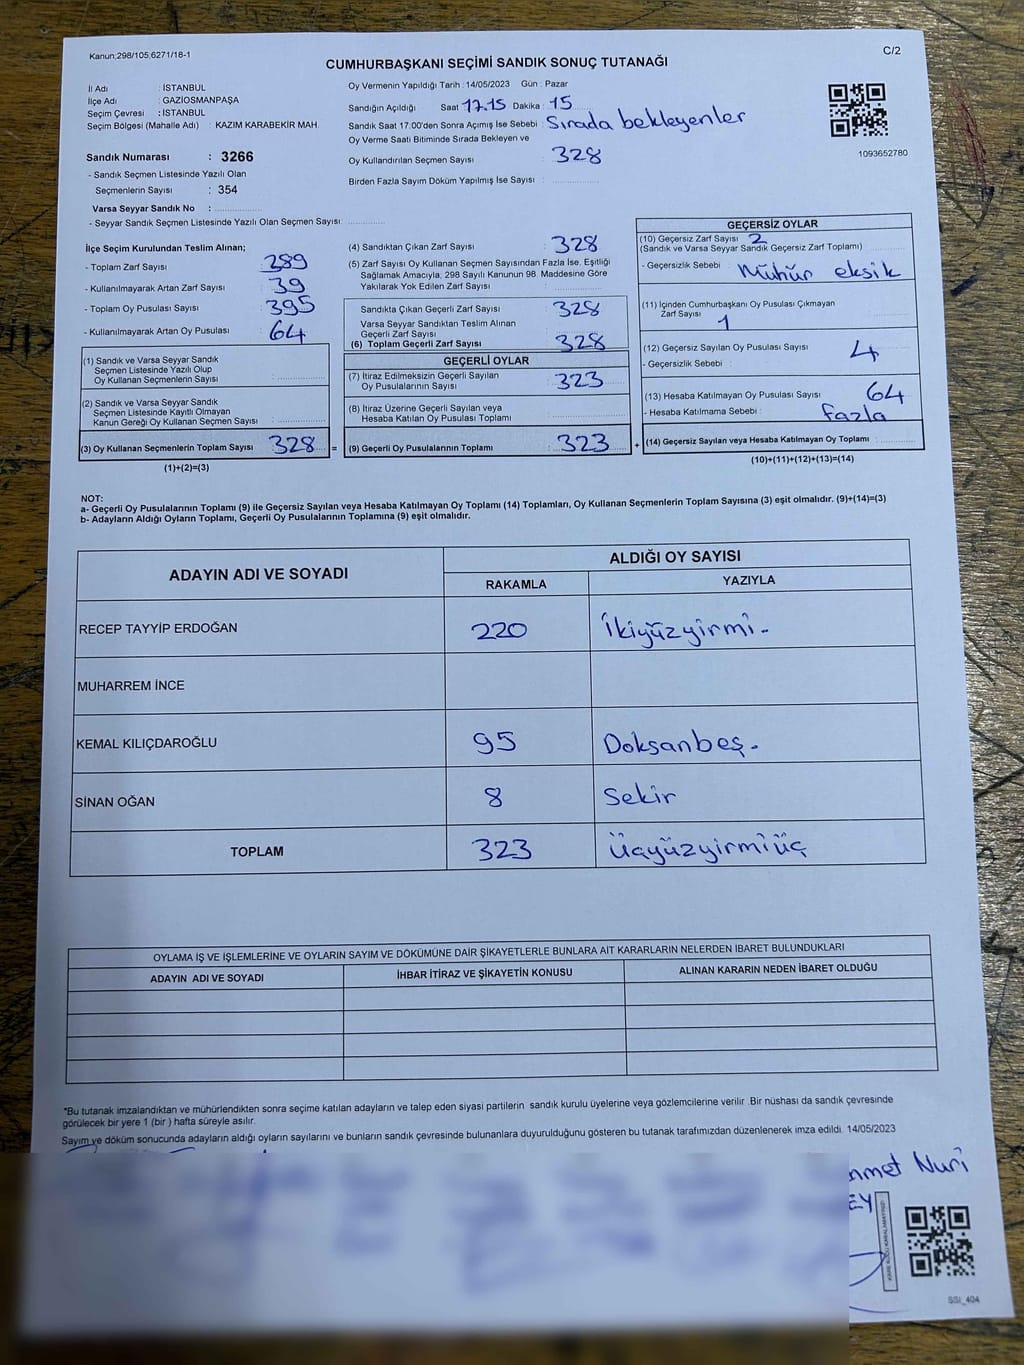 Kanun;298/105;6271/18-1
C/2
CUMHURBAŞKANI SEÇİMİ SANDIK SONUÇ TUTANAĞI
İl Adı : İSTANBUL
İlçe Adı : GAZİOSMANPAŞA
Seçim Çevresi : İSTANBUL
Seçim Bölgesi (Mahalle Adı) : KAZIM KARABEKİR MAH.
Sandık Numarası : 3266
- Sandık Seçmen Listesinde Yazılı Olan
Seçmenlerin Sayısı : 354
Varsa Seyyar Sandık No :
- Seyyar Sandık Seçmen Listesinde Yazılı Olan Seçmen Sayısı:
Oy Vermenin Yapıldığı Tarih : 14/05/2023 Gün : Pazar
Sandığın Açıldığı Saat 17.15 Dakika : 15
Sandık Saat 17.00'den Sonra Açılmış İse Sebebi : Sırada bekleyenler
Oy Verme Saati Bitiminde Sırada Bekleyen ve
Oy Kullandırılan Seçmen Sayısı : 328
Birden Fazla Sayım Döküm Yapılmış İse Sayısı :
1093652780
İlçe Seçim Kurulundan Teslim Alınan;
- Toplam Zarf Sayısı : 289
- Kullanılmayarak Artan Zarf Sayısı : 39
- Toplam Oy Pusulası Sayısı : 395
- Kullanılmayarak Artan Oy Pusulası : 64
(1) Sandık ve Varsa Seyyar Sandık
Seçmen Listesinde Yazılı Olup
Oy Kullanan Seçmenlerin Sayısı :
(2) Sandık ve Varsa Seyyar Sandık
Seçmen Listesinde Kayıtlı Olmayan
Kanun Gereği Oy Kullanan Seçmen Sayısı :
(3) Oy Kullanan Seçmenlerin Toplam Sayısı : 328 =
(1)+(2)=(3)
(4) Sandıktan Çıkan Zarf Sayısı : 328
(5) Zarf Sayısı Oy Kullanan Seçmen Sayısından Fazla İse, Eşitliği
Sağlamak Amacıyla; 298 Sayılı Kanunun 98. Maddesine Göre
Yakılarak Yok Edilen Zarf Sayısı :
Sandıkta Çıkan Geçerli Zarf Sayısı : 328
Varsa Seyyar Sandıktan Teslim Alınan
Geçerli Zarf Sayısı :
(6) Toplam Geçerli Zarf Sayısı : 328
GEÇERLİ OYLAR
(7) İtiraz Edilmeksizin Geçerli Sayılan
Oy Pusulalarının Sayısı : 323
(8) İtiraz Üzerine Geçerli Sayılan veya
Hesaba Katılan Oy Pusulası Toplamı :
(9) Geçerli Oy Pusulalarının Toplamı : 323 +
GEÇERSİZ OYLAR
(10) Geçersiz Zarf Sayısı : 2
(Sandık ve Varsa Seyyar Sandık Geçersiz Zarf Toplamı)
- Geçersizlik Sebebi : Mühür eksik
(11) İçinden Cumhurbaşkanı Oy Pusulası Çıkmayan
Zarf Sayısı : 1
(12) Geçersiz Sayılan Oy Pusulası Sayısı : 4
- Geçersizlik Sebebi :
(13) Hesaba Katılmayan Oy Pusulası Sayısı : 64
- Hesaba Katılmama Sebebi : fazla
(14) Geçersiz Sayılan veya Hesaba Katılmayan Oy Toplamı :
(10)+(11)+(12)+(13)=(14)
NOT:
a- Geçerli Oy Pusulalarının Toplamı (9) ile Geçersiz Sayılan veya Hesaba Katılmayan Oy Toplamı (14) Toplamları, Oy Kullanan Seçmenlerin Toplam Sayısına (3) eşit olmalıdır. (9)+(14)=(3)
b- Adayların Aldığı Oyların Toplamı, Geçerli Oy Pusulalarının Toplamına (9) eşit olmalıdır.
ADAYIN ADI VE SOYADI
ALDIĞI OY SAYISI
RAKAMLA YAZIYLA
RECEP TAYYİP ERDOĞAN 220 İkiyüzyirmi-
MUHARREM İNCE
KEMAL KILIÇDAROĞLU 95 Doksanbeş-
SİNAN OĞAN 8 Sekir
TOPLAM 323 Üçyüzyirmiüç
OYLAMA İŞ VE İŞLEMLERİNE VE OYLARIN SAYIM VE DÖKÜMÜNE DAİR ŞİKAYETLERLE BUNLARA AİT KARARLARIN NELERDEN İBARET BULUNDUKLARI
ADAYIN ADI VE SOYADI İHBAR İTİRAZ VE ŞİKAYETİN KONUSU ALINAN KARARIN NEDEN İBARET OLDUĞU
*Bu tutanak imzalandıktan ve mühürlendikten sonra seçime katılan adayların ve talep eden siyasi partilerin sandık kurulu üyelerine veya gözlemcilerine verilir .Bir nüshası da sandık çevresinde
görülecek bir yere 1 (bir ) hafta süreyle asılır.
Sayım ve döküm sonucunda adayların aldığı oyların sayılarını ve bunların sandık çevresinde bulunanlara duyurulduğunu gösteren bu tutanak tarafımızdan düzenlenerek imza edildi. 14/05/2023
Nuri
SSI_404